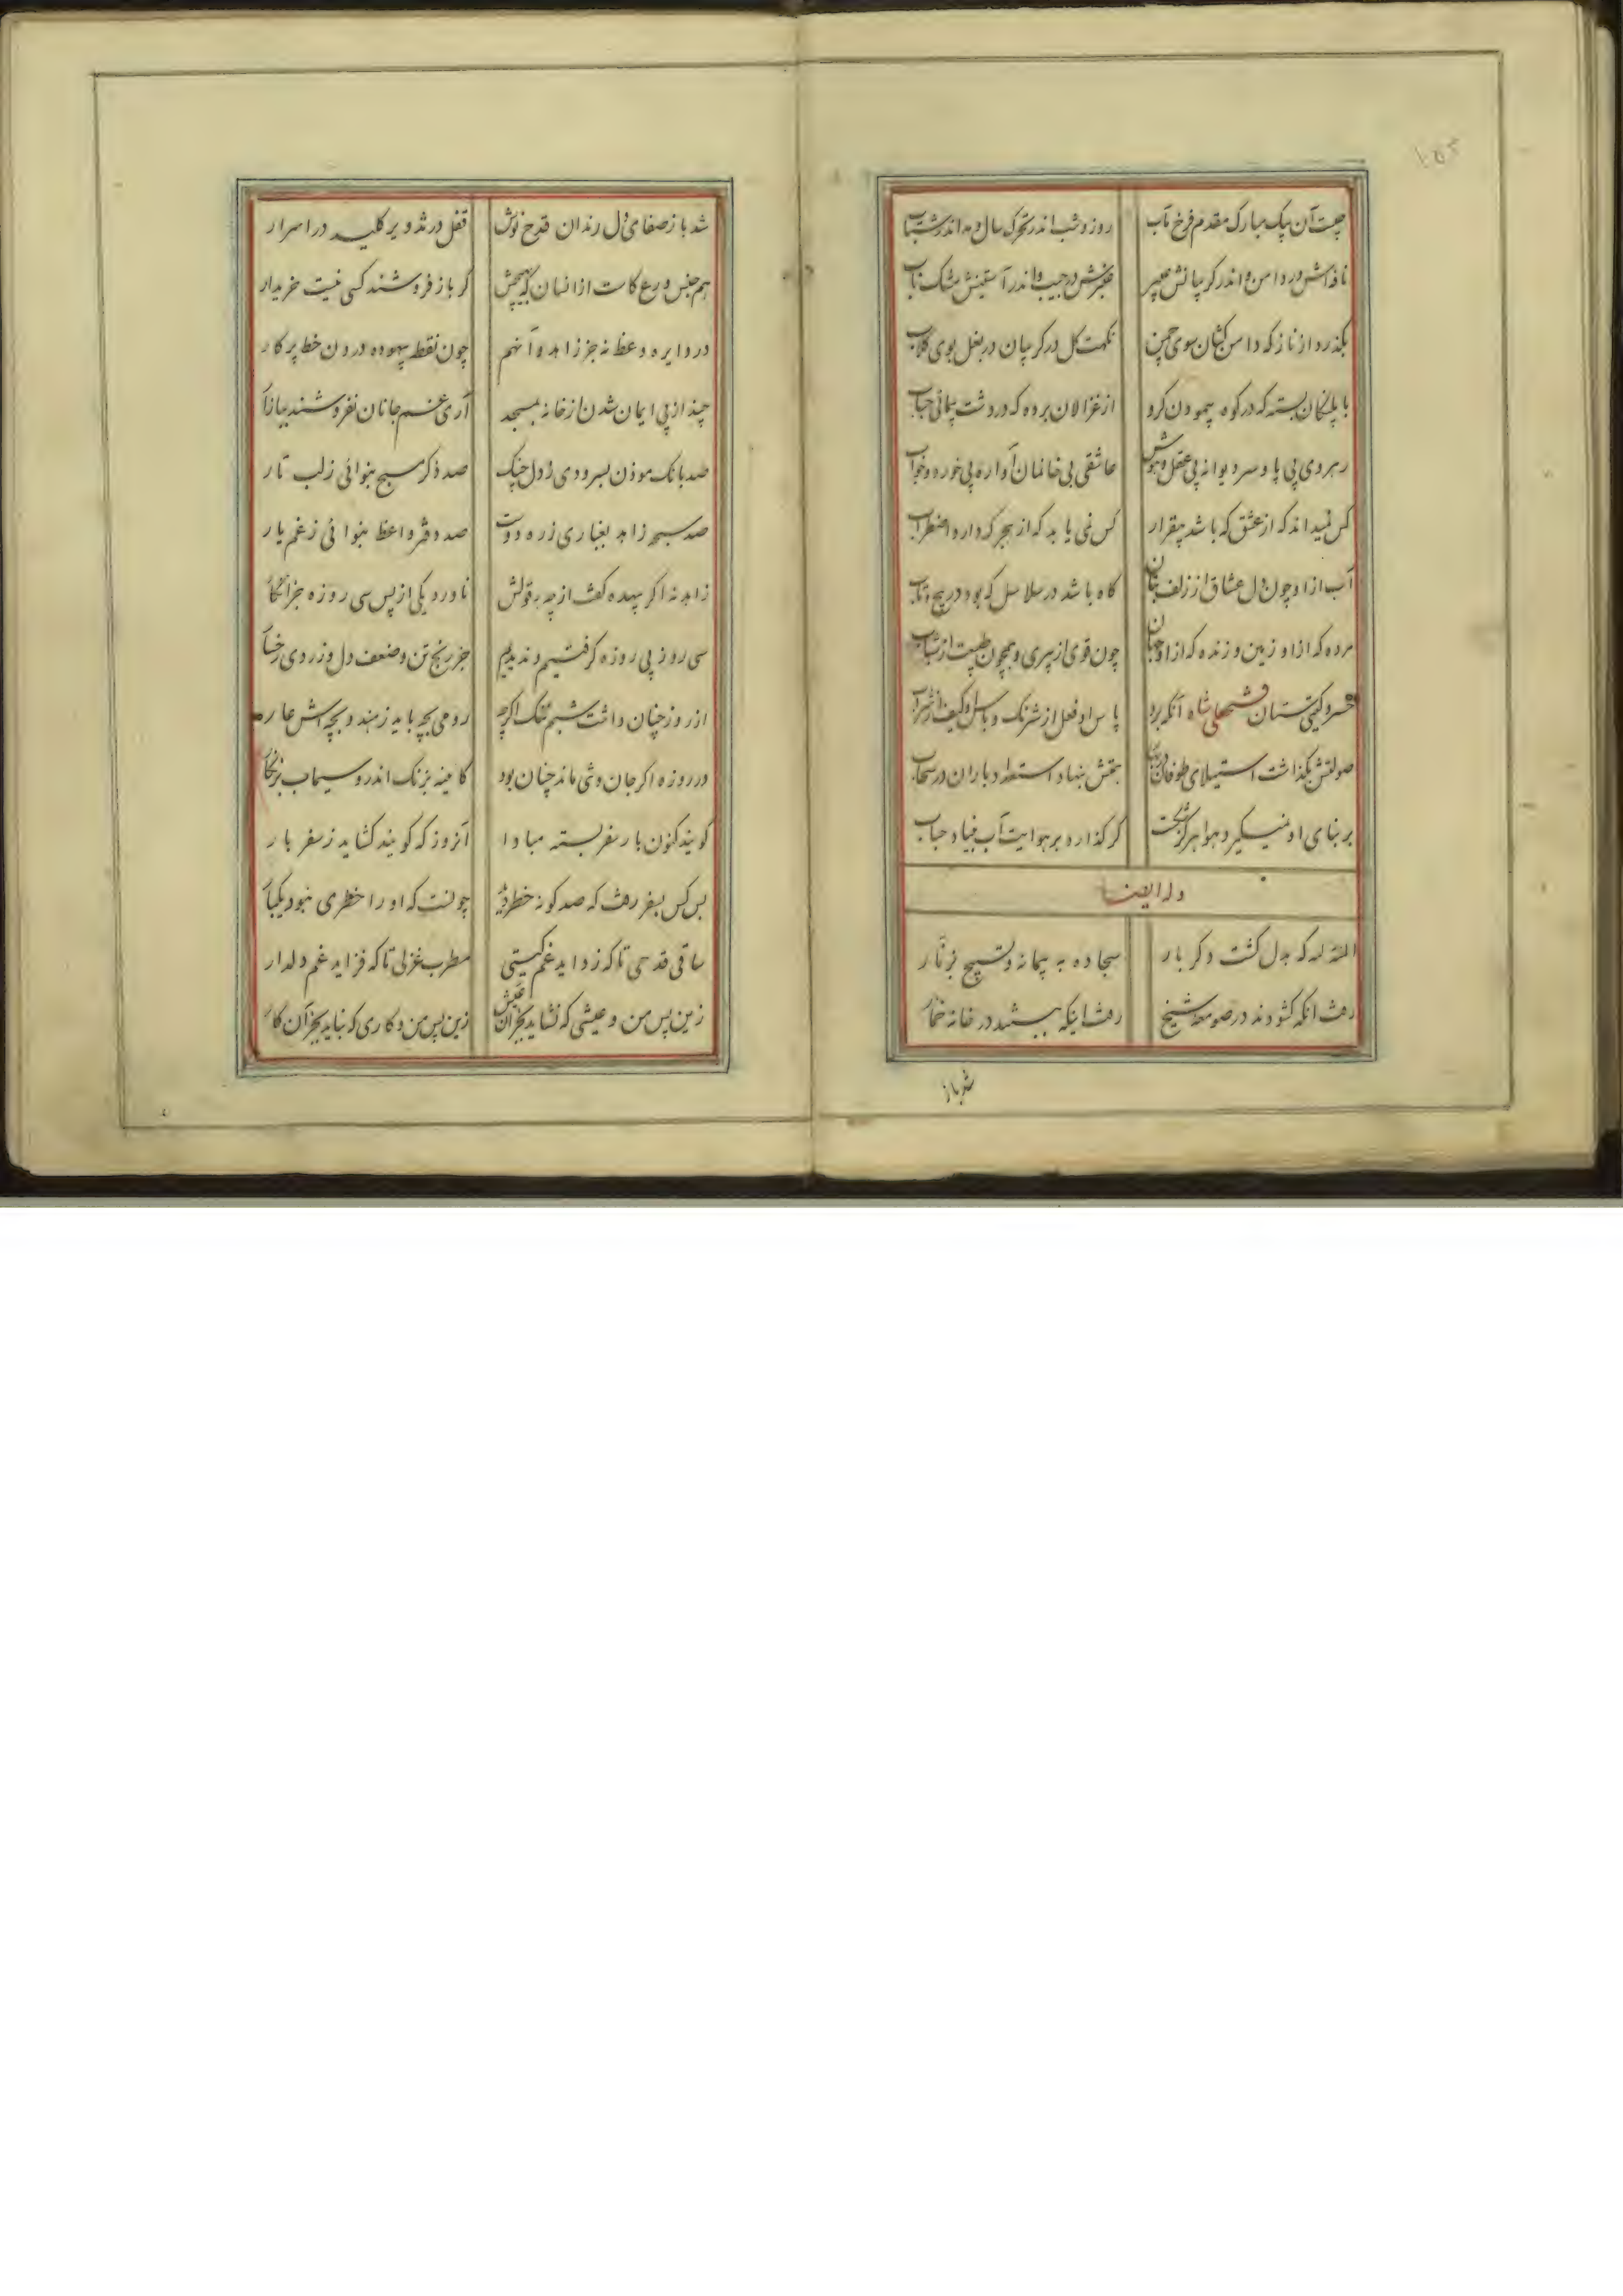 چیست آن پیک مبارک مقدم فرخ مآب روز و شب اندر تحرک سال و مه اندر شتاب
نافه‌اش در دامن و اندر کریبانش عبیر عنبرش در جیب و اندر آستینش مشک ناب
بگذرد از ناز که دامن کشان سوی چمن نکهت کل در کریبان در بغل بوی کلاب
با پلنکان بسته که در کوه پیمودن کرو از غزالان برده که در دشت پیمائی
رهروی بی پا و سر دیوانه بی عقل و هوش عاشقی بی خانمان آواره بی خورد و خواب
کس نمیداند که از عشق که باشد بیقرار کس نمی یابد که از هجر که دارد اضطراب
آب ازاو چون دل عشاق از زلف بتان کاه باشد در سلاسل که بود در پیچ و تاب
مرده که ازاو زمین و زنده که ازاو جهان چون قوی از پیری و همچون طبیعت از شباب
خسرو کیتی ستان فتحعلی شاه آنکه برد پاس او فعل از شرنک و باس او کیف از شراب
صولتش بگذاشت استیلای طوفان بخشش بنهاد استعداد باران در سحاب
بر بنای او نمیگیرد هوا هرکز شکست کر گذارد بر هوایت آب بنیاد حباب
وله ایضا
المنة لله که بدل کشت دکر بار سجاده به پیمانه و تسبیح بزنار
رفت انکه کشودند در صومعه شیخ رفت اینکه ببستند در خانه خمار
شد باز
۱۵۲
شد باز صفای دل رندان قدح نوش قفل در تزویر کلید در اسرار
هم جنس ورع کاست ازانسان که بهیچش کر باز فروشند کسی نیست خریدار
در دایره وعظ نه جز زاهد و آنهم چون نقطه بیهوده درون خط پرکار
چند از پی ایمان شدن از خانه بمسجد آری غم جانان نفروشند ببازار
صد بانک موذن بسرودی ز دل چنک صد ذکر مسبح بنوائی ز لب تار
صد سبحه زاهد بغباری ز ره دوست صد دفتر واعظ بنوائی ز غم یار
زاهد نه اکر بیهده کفت از چه بقولش ناورد یکی از پس سی روزه جز انکار
سی روز پی روزه گرفتیم و ندیدیم جز رنج تن و ضعف دل و زردی رخسار
از روز چنان داشت شبم ننک اکرچه رومی بچه باید ز هند و بچه‌اش عار
در روزه اکر جان و می ماند چنان بود کاینه بزنک اندر و سیماب بزنکار
کویند کنون بار سفر بسته مبادا آنروز که کویند کشاید ز سفر بار
بس کس بسفر رفت که صد کونه خطر دید چونست که او را خطری نبود یکبار
ساقی قدحی تا که زداید غم کیتی مطرب غزلی تا که فزاید غم دلدار
زین پس من و عیشی که نشاید بجز آن عیش زین پس من و کاری که نباید بجز آن کار